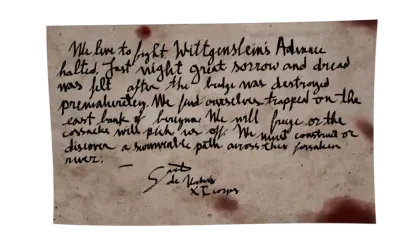 We live to fight Wittgenstein's Advance
halted. Last night great sorrow and dread
was felt after the bridge was destroyed
prematurely. We find ourselves trapped on the
east bank of berezyna. We will freeze or the
cossacks will pick us off. We must construct or
discover a survivable path across this forsaken
river. —
de
XI corps